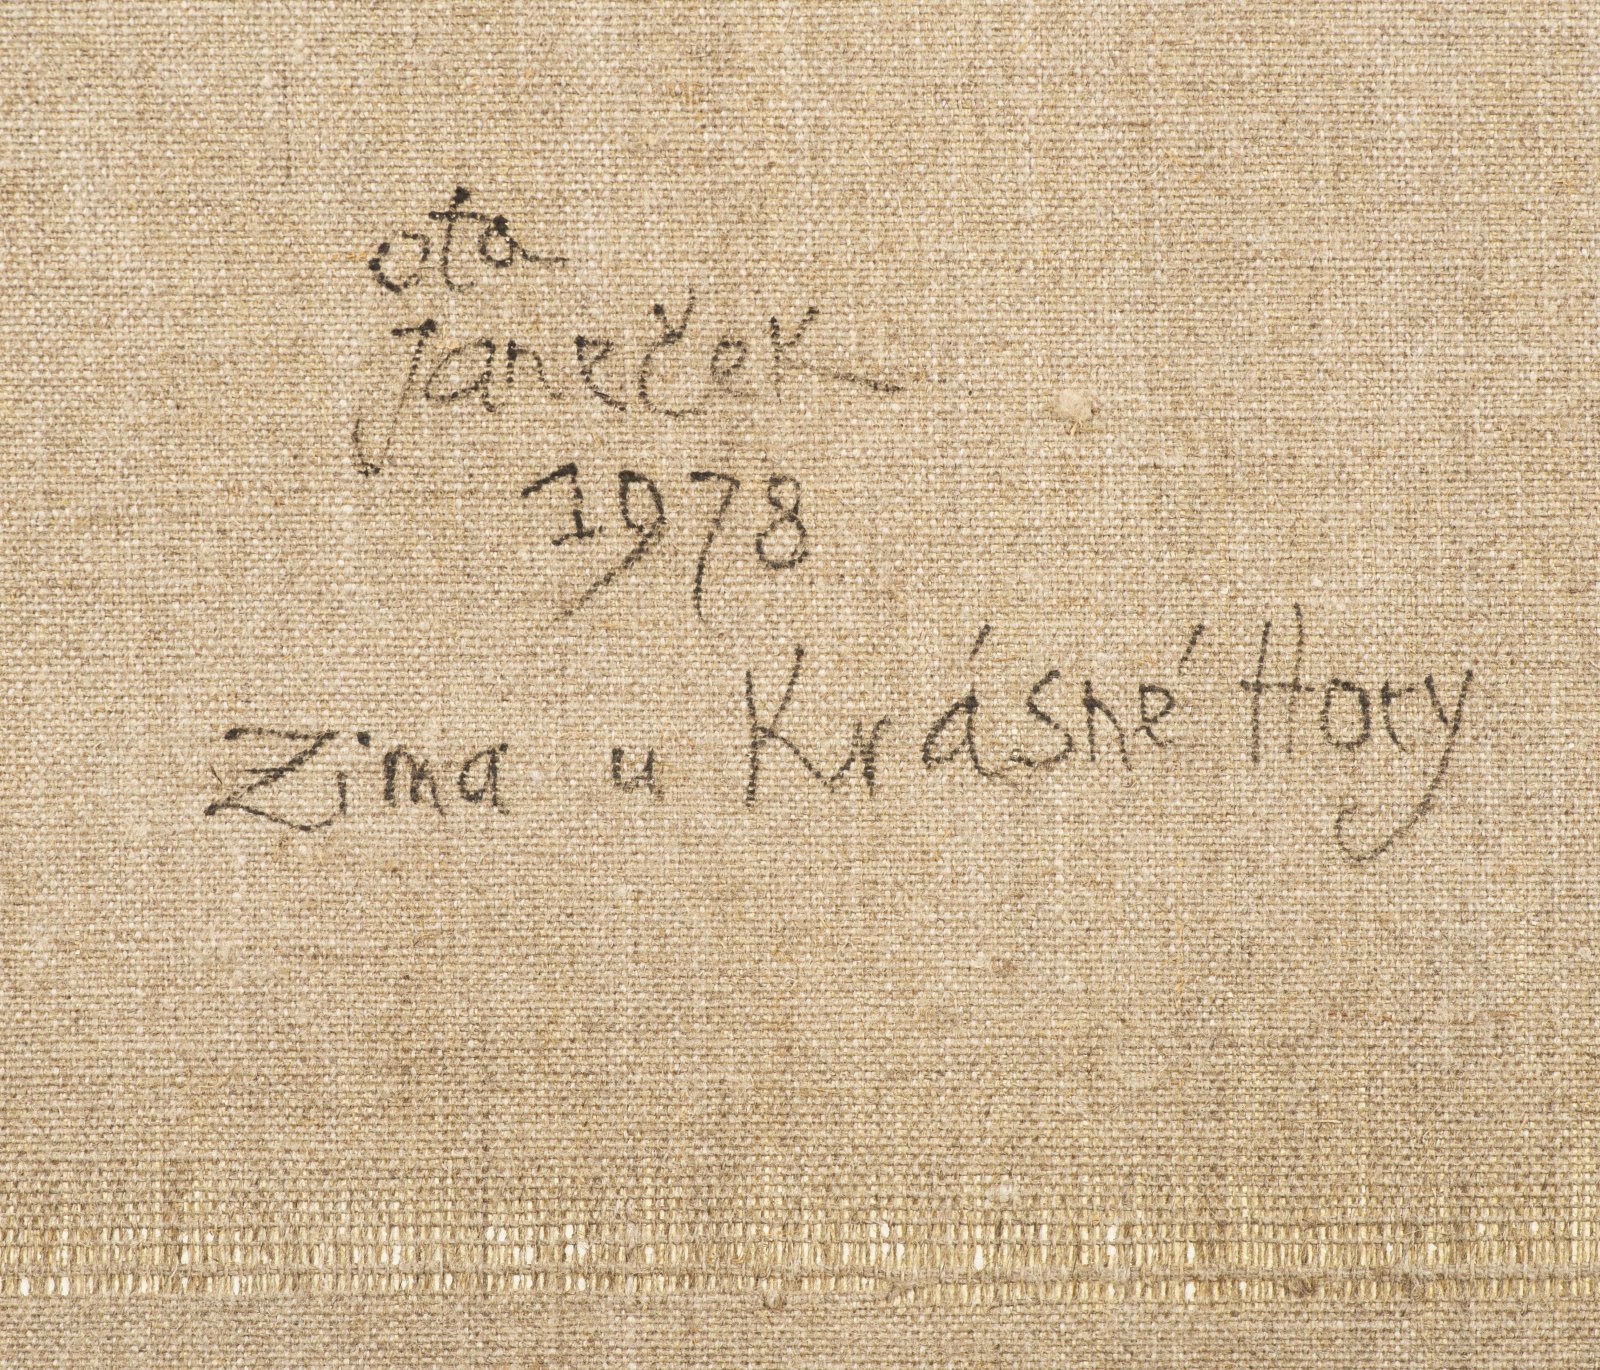 ota
Janeček
1978
Zima u Krásné Hory